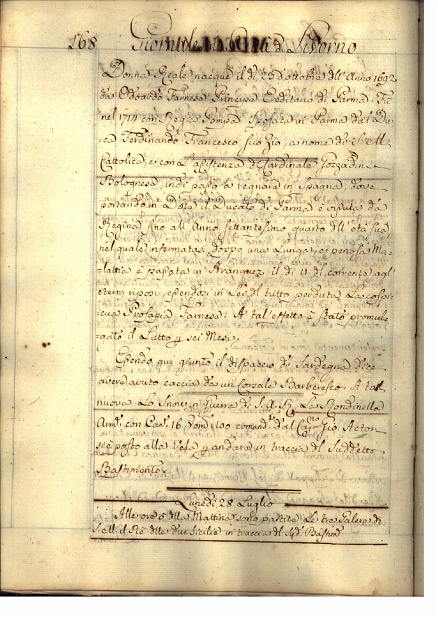 168 Giornale di Livorno
Donna Reale nacque il dì 25 d'ottobre dell'Anno 1692
da Odoardo Farnese Principe Ereditario di Parma. Fu
nel 1714 con Regia Pompa sposata in Parma dal Du
ca Ferdinando Francesco suo Zio, a nome di S. M.
Cattolica, e con l'assistenza del Cardinale Gozzadini
Bolognese, indi passò a regnare in Spagna dove
portando in Dote il Ducato di Parma e
Regina fino all'Anno settantesimo quarto dell'età sua
nel quale infermatasi doppo una lunga, e penosa Ma
lattia è passata in Aranquez il dì 11 del corrente agl'
eterni riposi, essendosi in Lei del tutto perduta La
cua Prosapia Farnese. A tal'effetto è stato promul
gato il Lutto per sei Mesi.
Essendo qui giunto il dispaccio di Sardegna di
avere avuto caccia da un Corsale Barbaresco. A tal
nuova Lo Snow in Guerra di S. A. R. La Rondinella
Arm. con Can. 16, Uom. 100 comand. dal Cap.no Gio. Acton
si è posto alla Vela, e andato in traccia del Suddetto
Bastimento.
Lunedì 28 Luglio
Alle ore 5 della Mattina sono partite Le tre Galere di
S. M. il Re delle due Sicilie in traccia del Sud. Bastim.